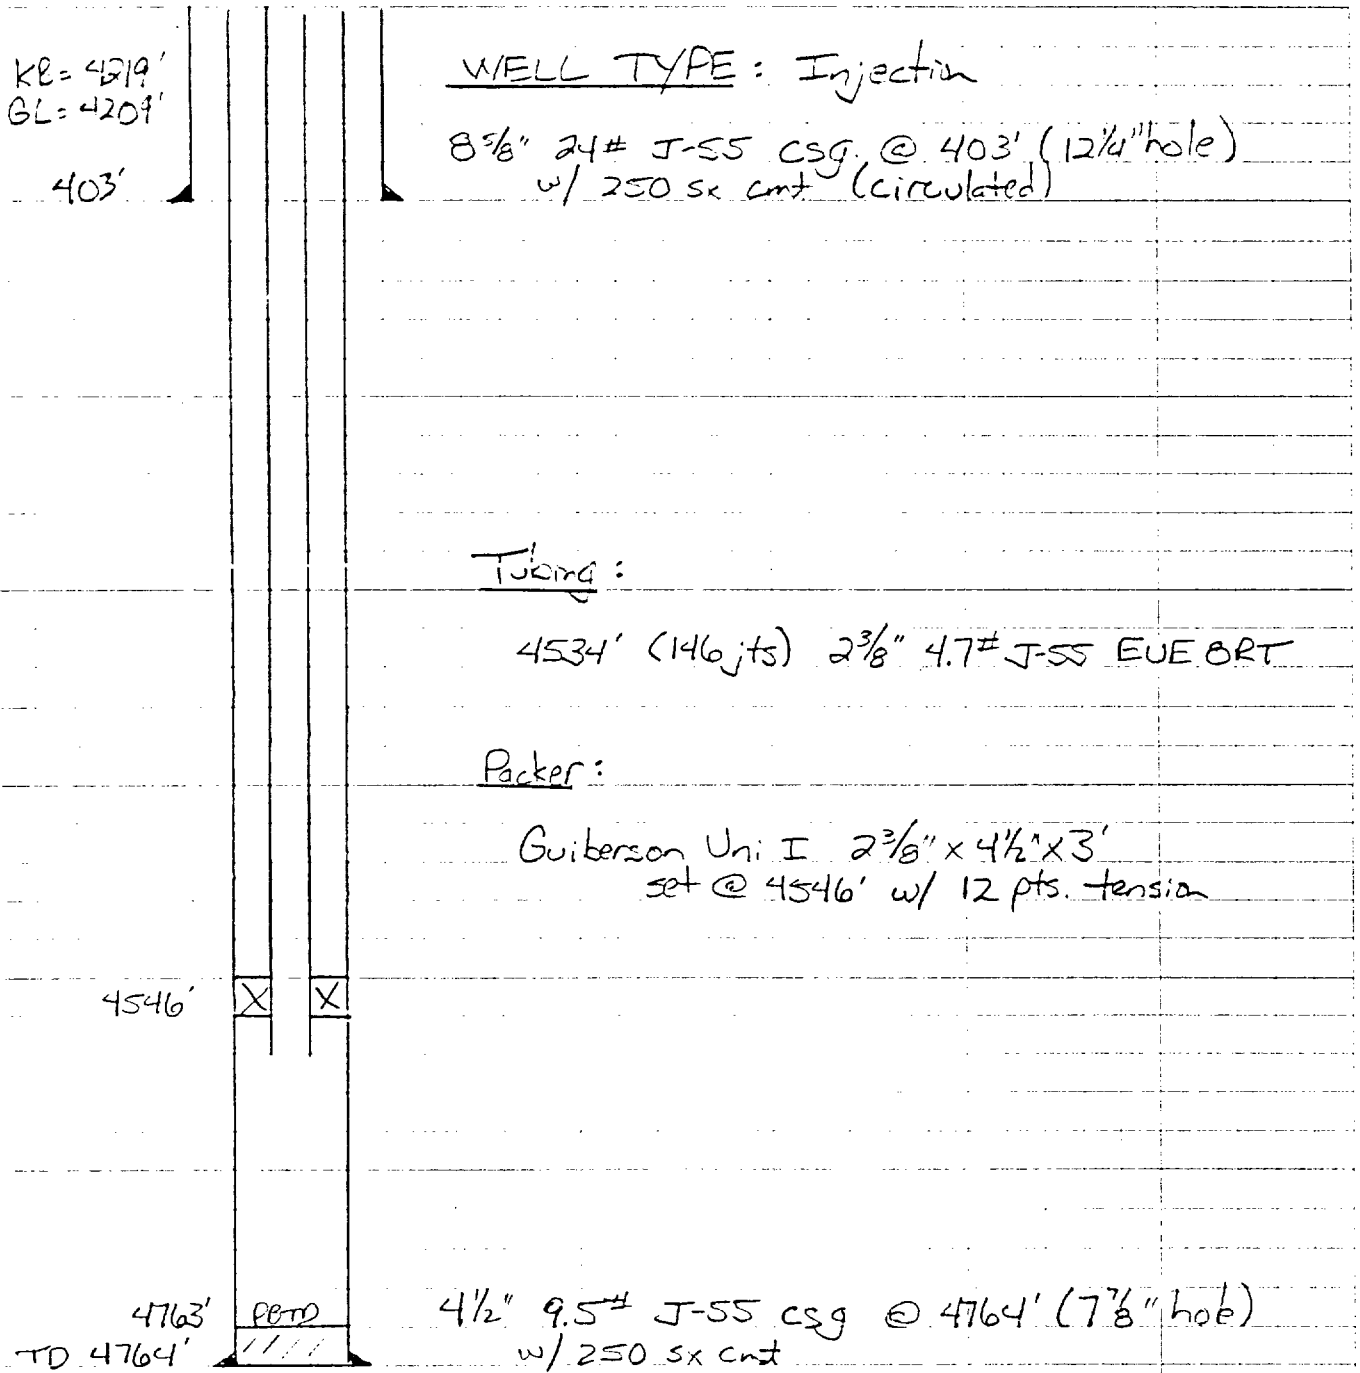 KB= 4219'
GL= 4209'
WELL TYPE: Injection
8 5/8" 24# J-55 csg. @ 403' (12 1/4" hole)
403'
w/ 250 sx cmt (circulated)
Tubing:
4534' (146 jts) 2 3/8" 4.7# J-55 EUE 8RT
Packer:
Guiberson Uni I 2 3/8" x 4 1/2" x 3'
set @ 4546' w/ 12 pts. tension
4546'
X X
4763' PBTD
4 1/2" 9.5# J-55 csg @ 4764' (7 7/8" hole)
TD 4764'
w/ 250 sx cmt